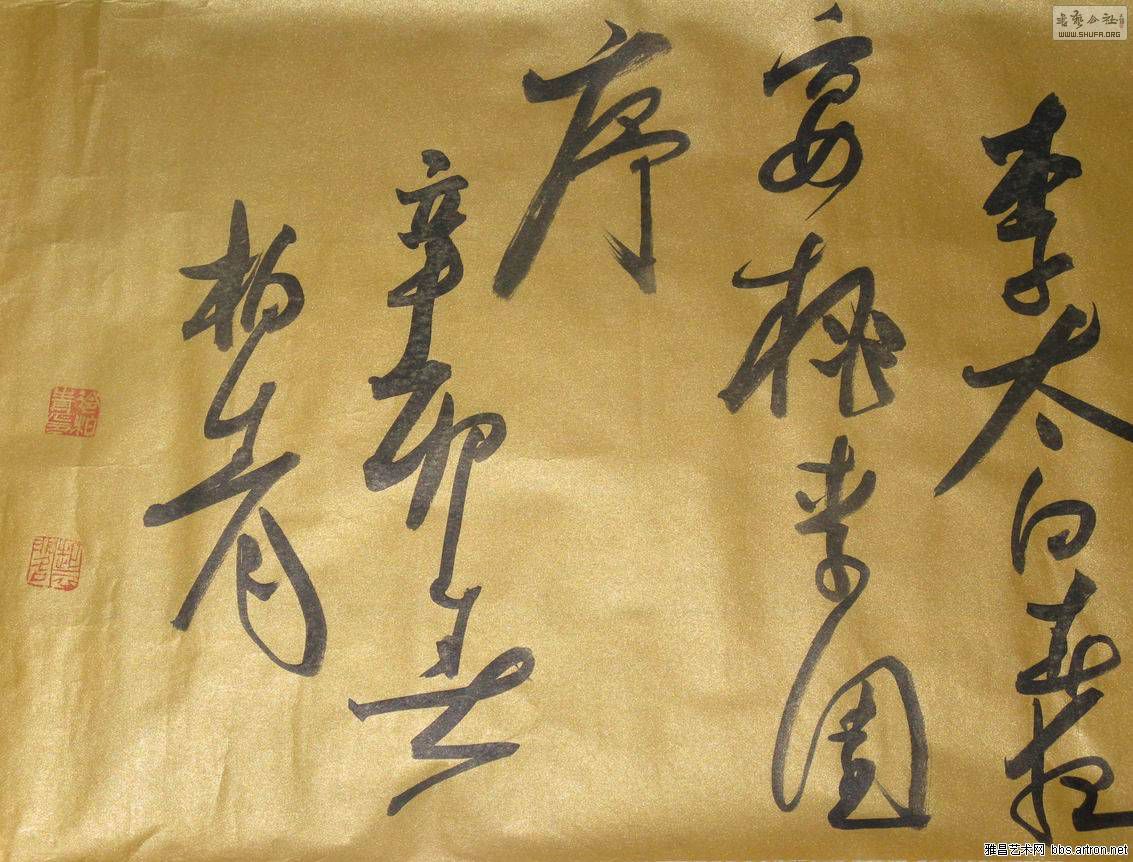 李太白春夜
宴桃李園
序
辛卯
柏青
书艺公社
WWW.SHUFA.ORG
雅昌艺术网 bbs.artron.net